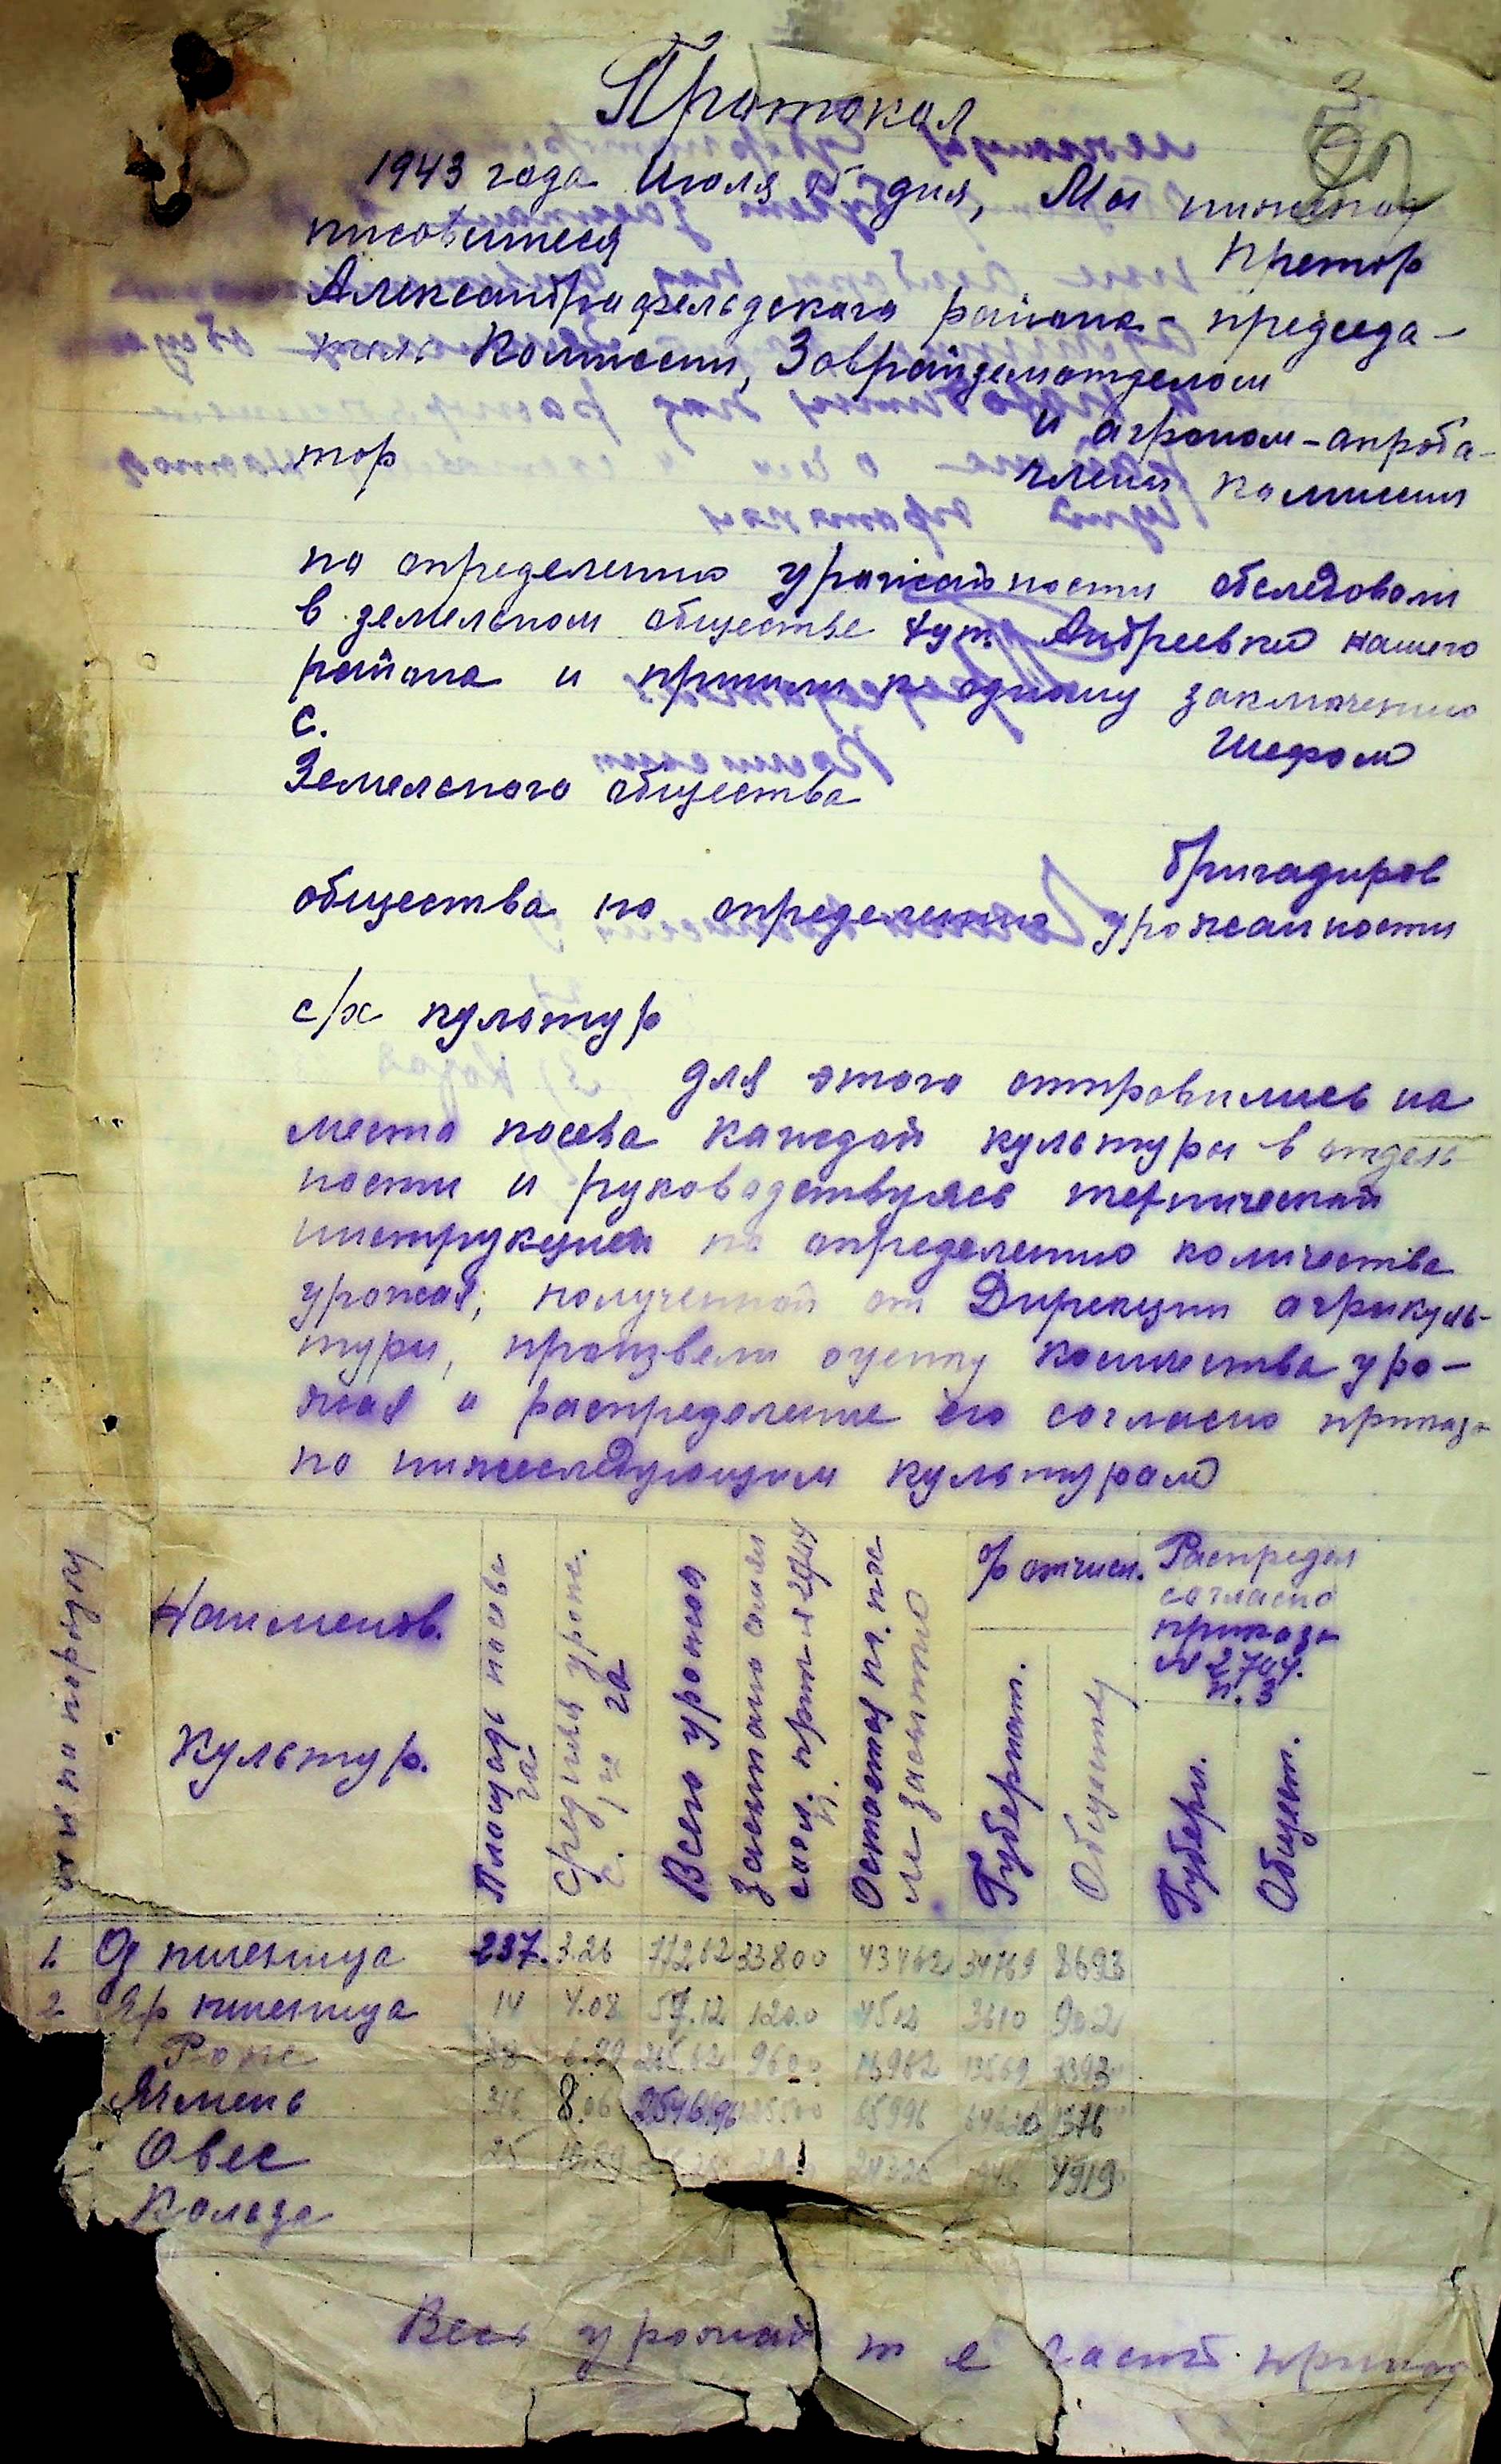 Протокол
1943 года Июля 15 дня, Мы нижепод
писовшиеся Претор
Александрафельдского района - председа-
тель Комиссии, Заврайземотделом
и агроном-апроба-
тор члены комиссии
по определению урожайности обследовали
в земельном обществе хут. Андреевка нашего
района и пришли к одному заключению
с. Шефом
Земельного общества
бригадиров
общества по определению урожайности
с/х культур
для этого отправились на
места посева каждой культуры в отдель
ности и руководствуясь технической
инструкцией по определению количества
урожая, полученной от Дирекции агрикуль-
туры, произвели оценку количества уро-
жая и распределение его согласно приказа
по нижеследующим культурам
по порядку
Наименов.
Культур.
Площадь посева
га
Средняя урож.
с 1 га
Всего урожая
Остается
% отчисл.
Губернат.
Обществу
Распредел
согласно
приказа
№ 2704.
п. 3
Губерн.
Общест.
1. Оз пшеница 237. 3.26 77262 33800 43462 34769 8693
2 Яр пшеница 14 4.08 57.12 1200 4512 3610 902
Рожь 9600 16962 13569 3393
Ячмень 316 8.06 2546.96 65996 1376
Овес 25 4919
Кользе
Весь урожай т е част.